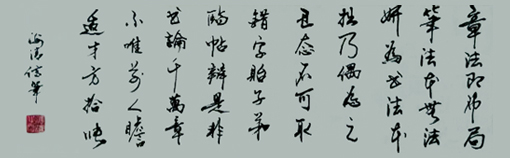 章法即布局
筆法本無法
妍為书法本
拙乃偶為之
丑态不可取
錯字貽子弟
临帖辨是非
书論千萬章
不唯前人瞻
才方拾
信筆